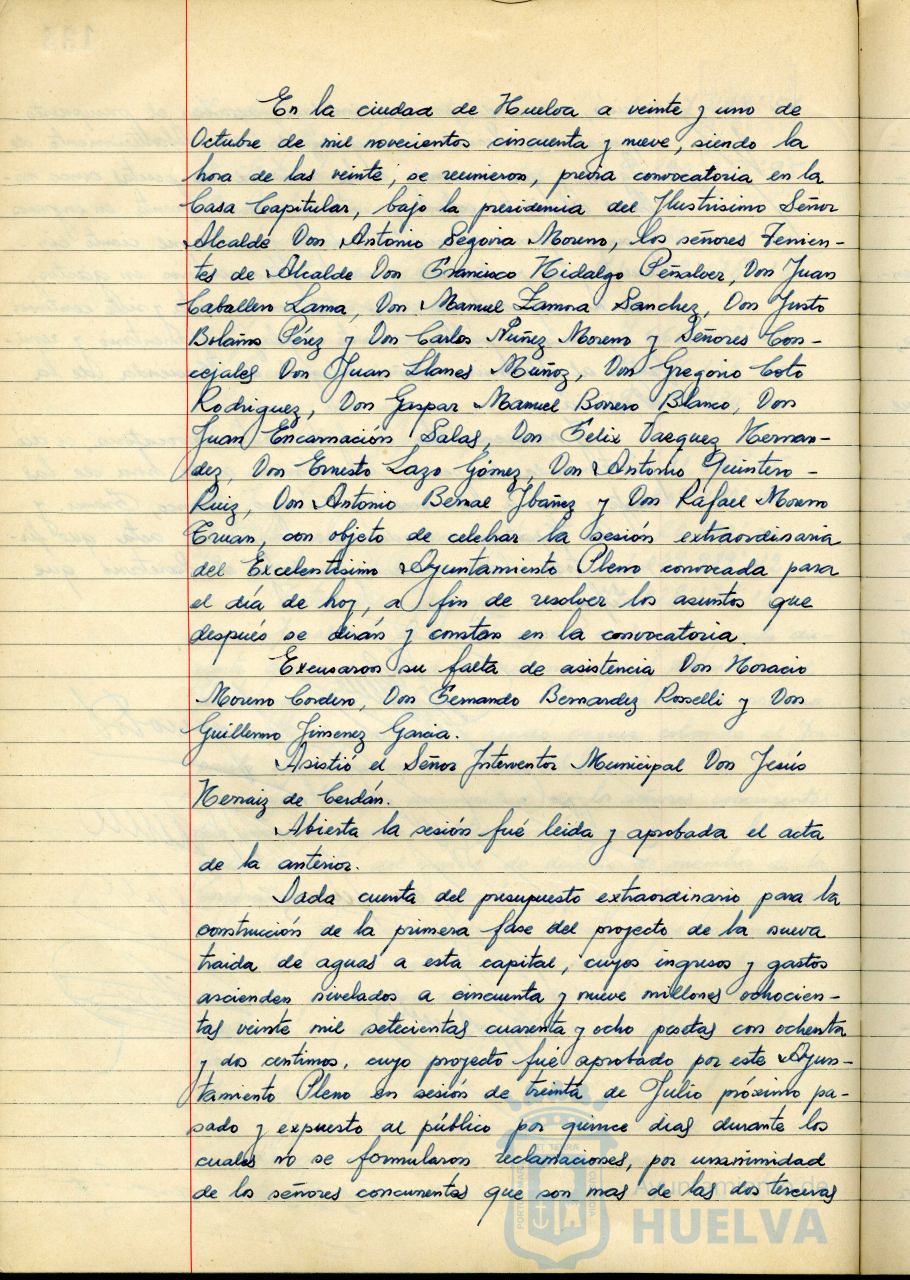 En la ciudad de Huelva a veinte y uno de
Octubre de mil novecientos cincuenta y nueve, siendo la
hora de las veinte, se reunieron, previa convocatoria en la
Casa Capitular, bajo la presidencia del Ilustrisimo Señor
Alcalde Don Antonio Segovia Moreno, los señores Tenien-
tes de Alcalde Don Francisco Hidalgo Peñalver, Don Juan
Caballero Lama, Don Manuel Zamora Sanchez, Don Justo
Bolaños Pérez y Don Carlos Núñez Moreno y Señores Con-
cejales Don Juan Llanes Muñoz, Don Gregorio Coto
Rodriguez, Don Gaspar Manuel Borrero Blanco, Don
Juan Encarnación Salas, Don Felix Vazquez Hernan-
dez, Don Ernesto Lazo Gómez, Don Antonio Quintero-
Ruiz, Don Antonio Bernal Ybáñez y Don Rafael Moreno
Eruan, con objeto de celebrar la sesión extraordinaria
del Excelentísimo Ayuntamiento Pleno convocada para
el día de hoy, a fin de resolver los asuntos que
después se dirán y constan en la convocatoria.
Excusaron su falta de asistencia Don Horacio
Moreno Cordero, Don Fernando Bernardez Rosselli y Don
Guillermo Jimenez Garcia.
Asistió el Señor Interventor Municipal Don Jesús
Hernaiz de Cerdán.
Abierta la sesión fué leida y aprobada el acta
de la anterior.
Dada cuenta del presupuesto extraordinario para la
construcción de la primera fase del proyecto de la nueva
traida de aguas a esta capital, cuyos ingresos y gastos
ascienden nivelados a cincuenta y nueve millones ochocien-
tas veinte mil setecientas cuarenta y ocho pesetas con ochenta
y dos centimos, cuyo proyecto fué aprobado por este Ayun-
tamiento Pleno en sesión de treinta de Julio próximo pa-
sado y expuesto al público por quince dias durante los
cuales no se formularon reclamaciones, por unanimidad
de los señores concurrentes que son mas de las dos terceras
Ayuntamiento de
HUELVA